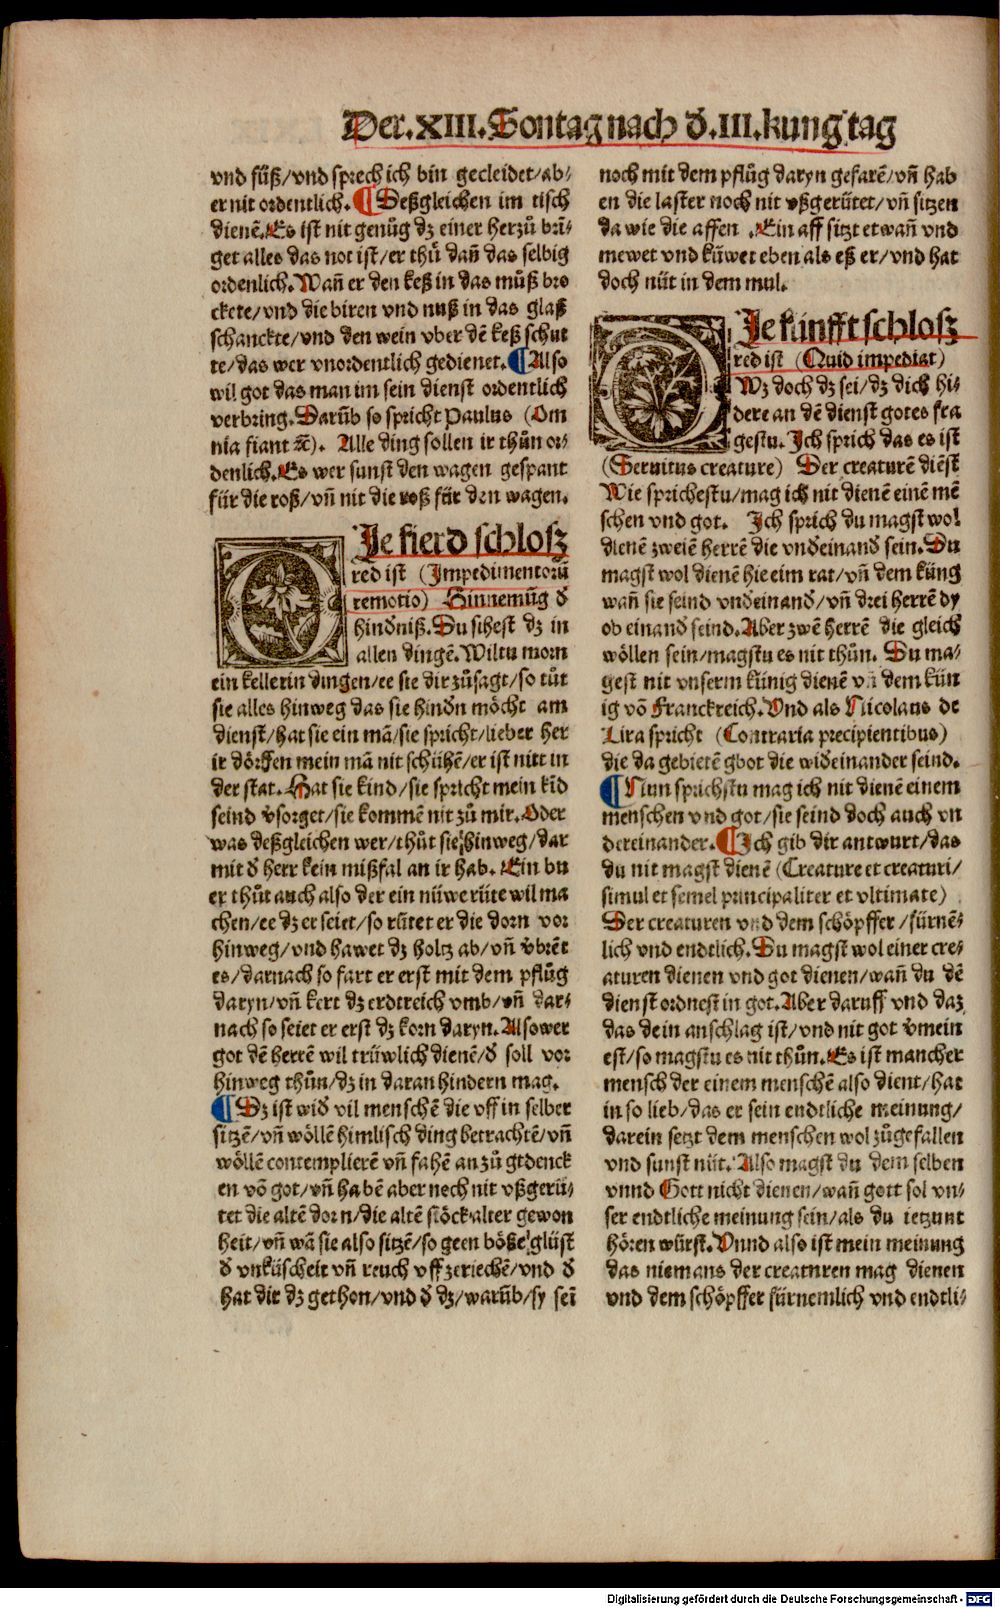 Der.XIII.Sontag nach ð.III.kung tag
vnd füß/vnd sprech ich bin gecleidet/ab⸗
er nit ordentlich. ¶ Deßgleichen im tisch
dienē.Es ist nit genůg dz einer herzů brī⸗
get alles das not ist/er thů dañ das selbig
ordenlich.Wañ er den keß in das můß bro
ckete/vnd die biren vnd nuß in das glaß
schanckte/vnd den wein vber dē keß schut
te/das wer vnordentlich gedienet.¶Also
wil got das man im sein dienst ordentlich
verbring.Darūb so spricht Paulus (Om
nia fiant ꝛc̄). Alle ding sollen ir thůn or⸗
denlich.Es wer sunst den wagen gespant
für die roß/vñ nit die roß für den wagen.
DJe fierd schlosz
red ist (Impedimentorū
remotio) Hinnemūg ð
hindniß.Du sihest dz in
allen dingē.Wiltu morn
ein kellerin dingen/ee sie dir zůsagt/so tůt
sie alles hinweg das sie hinðn möcht am
dienst/hat sie ein mā/sie spricht/lieber her
ir dörffen mein mā nit schühē/er ist nitt in
der stat.Hat sie kind/sie spricht mein kīd
seind v̄sorget/sie kommē nit zů mir.Oder
was deßgleichen wer/thůt sie hinweg/dar
mit ð herr kein mißfal an ir hab. Ein bu
er thůt auch also der ein nüwe rüte wil ma
chen/ee dz er seiet/so rütet er die dorn vor
hinweg/vnd hawet dz holtz ab/vñ v̄brēt
es/darnach so fart er erst mit dem pflůg
daryn/vñ kert dz erdtreich vmb/vñ dar⸗
nach so seiet er erst dz korn daryn.Also wer
got dē herrē wil trüwlich dienē/ð soll vor
hinweg thůn/dz in daran hindern mag.
¶Dz ist wið vil menschē die vff in selber
sitzē/vñ wöllē himlisch ding betrachtē/vñ
wöllē contemplierē vñ fahē an zů gedenck
en vō got/vñ habē aber noch nit vßgerü⸗
tet die altē dorn/die altē stöck alter gewon
heit/vñ wā sie also sitzē/so geen böße glüst
ð vnküscheit vñ reuch vff zeriechē/vnd ð
hat dir dz gethon/vnd ð dz/warūb/sy seī
noch mit dem pflůg daryn gefarē/vñ hab
en die laster noch nit vßgerütet/vñ sitzen
da wie die affen .Ein aff sitzt etwañ vnd
mewet vnd kūwet eben als eß er/vnd hat
doch nüt in dem mul.
DJe künfft schlosz
red ist (Quid impediat)
Wz doch dz sei/dz dich hi⸗
dere an dē dienst gotes fra
gestu.Ich sprich das es ist
(Seruitus creature) Der creaturē diēst
Wie sprichestu/mag ich nit dienē einē mē
schen vnd got. Ich sprich du magst wol
dienē zweiē herrē die vnðeinanð sein.Du
magst wol dienē hie eim rat/vñ dem küng
wañ sie seind vnðeinanð/vñ drei herrē dy
ob einanð seind.Aber zwē herrē die gleich
wöllen sein/magstu es nit thůn. Du ma⸗
gest nit vnserm künig dienē vñ dem kün
ig vō Franckreich.Vnd als Nicolaus de
Lira spricht (Contraria precipientibus)
die da gebietē gbot die wiðeinander seind.
¶Nun sprichstu mag ich nit dienē einem
menschen vnd got/sie seind doch auch vn
dereinander.¶Ich gib dir antwurt/das
du nit magst dienē (Creature et creatori/
simul et semel principaliter et vltimate)
Der creaturen vnd dem schöpffer/fürnē⸗
lich vnd endtlich.Du magst wol einer cre⸗
aturen dienen vnd got dienen/wañ du dē
dienst ordnest in got.Aber daruff vnd daz
das dein anschlag ist/vnd nit got v̄mein
est/so magstu es nit thůn.Es ist mancher
mensch der einem menschē also dient/hat
in so lieb/das er sein endtliche meinung/
darein setzt dem menschen wol zůgefallen
vnd sunst nüt.Also magst du dem selben
vnnd Gott nicht dienen/wañ gott sol vn⸗
ser endtliche meinung sein/als du ietzunt
hören würst.Vnnd also ist mein meinung
das niemans der creaturen mag dienen
vnd dem schöpffer fürnemlich vnd endtli⸗
Digitalisierung gefördert durch die Deutsche Forschungsgemeinschaft - DFG